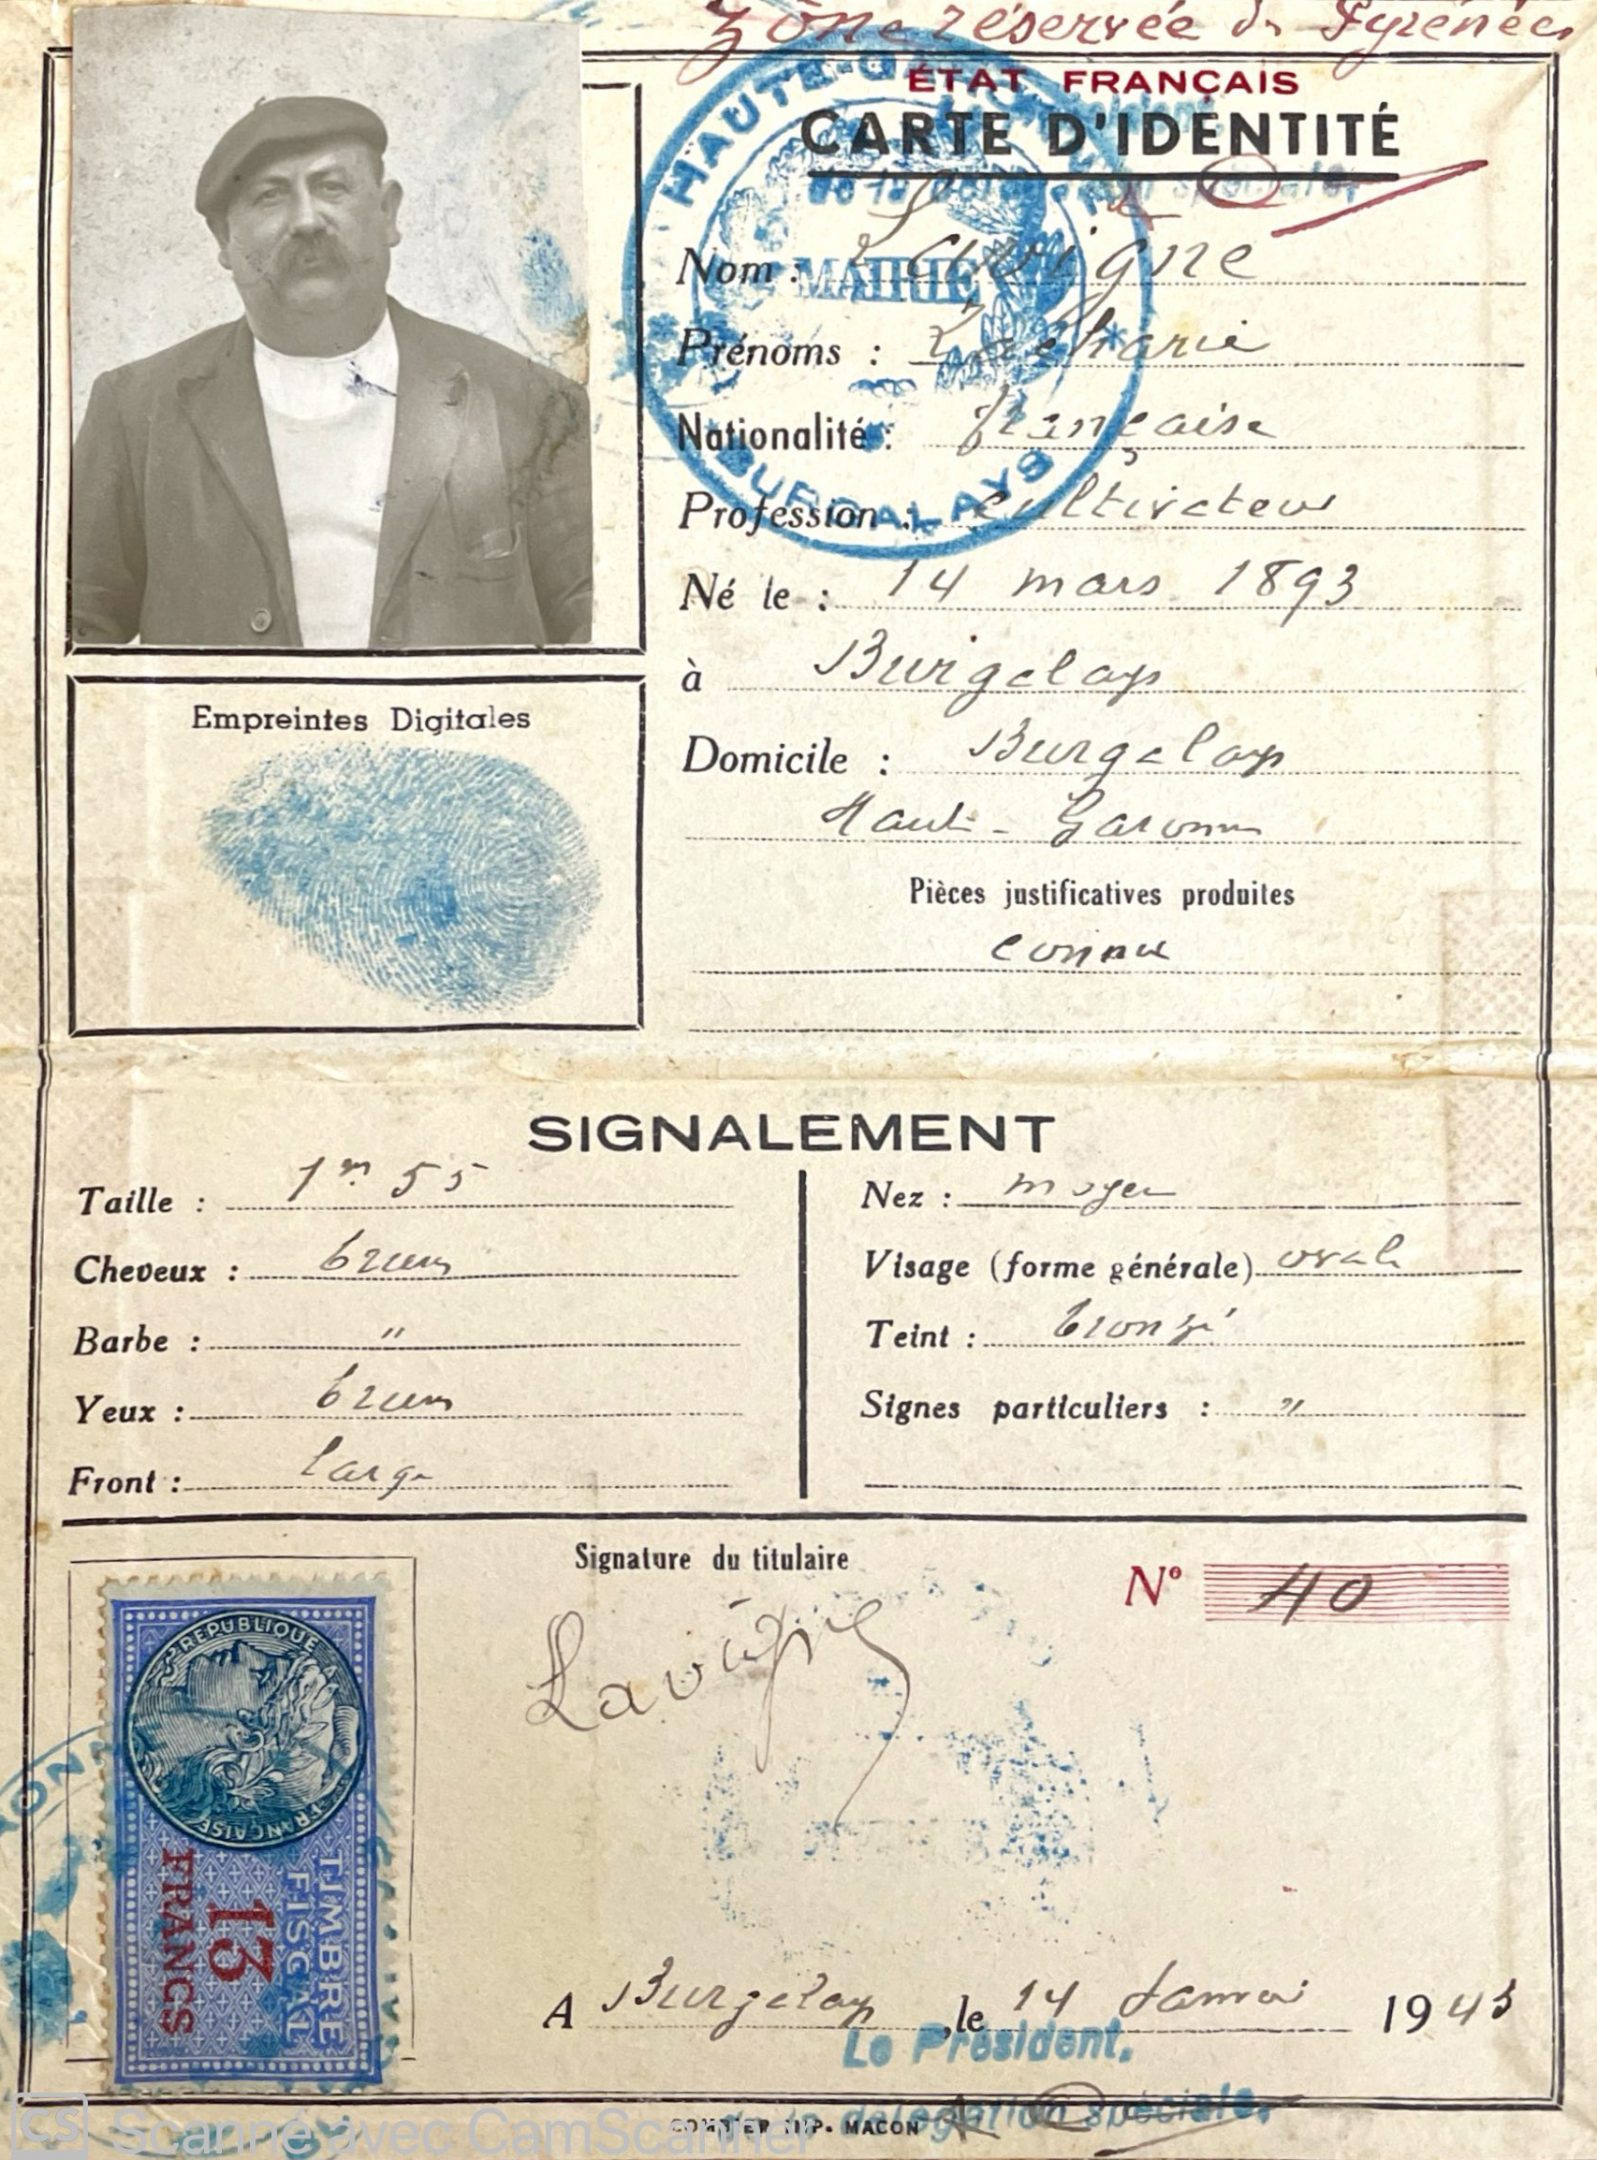 Zône réservée des Pyrénées
ÉTAT FRANÇAIS
CARTE D'IDENTITÉ
HAUTE-G
MAIRIE
BURGALAYS
Nom : Lavigne
Prénoms : Zacharie
Nationalité : française
Profession : cultivateur
Né le : 14 mars 1893
à Burgalays
Domicile : Burgalays
Haute-Garonne
Pièces justificatives produites
connu
Empreintes Digitales
SIGNALEMENT
Taille : 1m 55
Cheveux : bruns
Barbe : "
Yeux : bruns
Front : large
Nez : moyen
Visage (forme générale) ovale
Teint : bronzé
Signes particuliers : "
Signature du titulaire
Lavigne
N° 40
RÉPUBLIQUE FRANÇAISE
TIMBRE
FISCAL
13
FRANCS
A Burgalays, le 14 Janvier 1943
Le Président,
de la délégation spéciale.
IMP. MACON
CS Scanné avec CamScanner